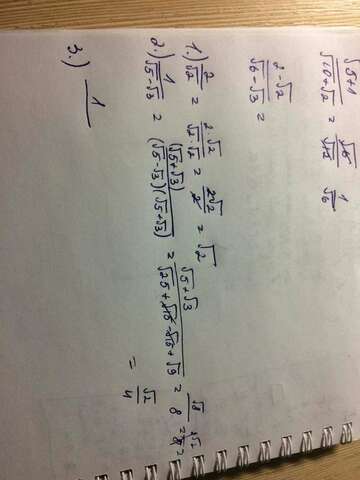 √5+1/√10+√2 = √6/√12 1/√6
2-√2/√6-√3 =
1.) 2/√2 = 2·√2/√2·√2 = 2√2/2 = √2
2.) 1/√5-√3 = (√5+√3)/(√5-√3)(√5+√3) = √5+√3/√25+√15-√15+√9 = √8/8 = √2/4
3.) 1